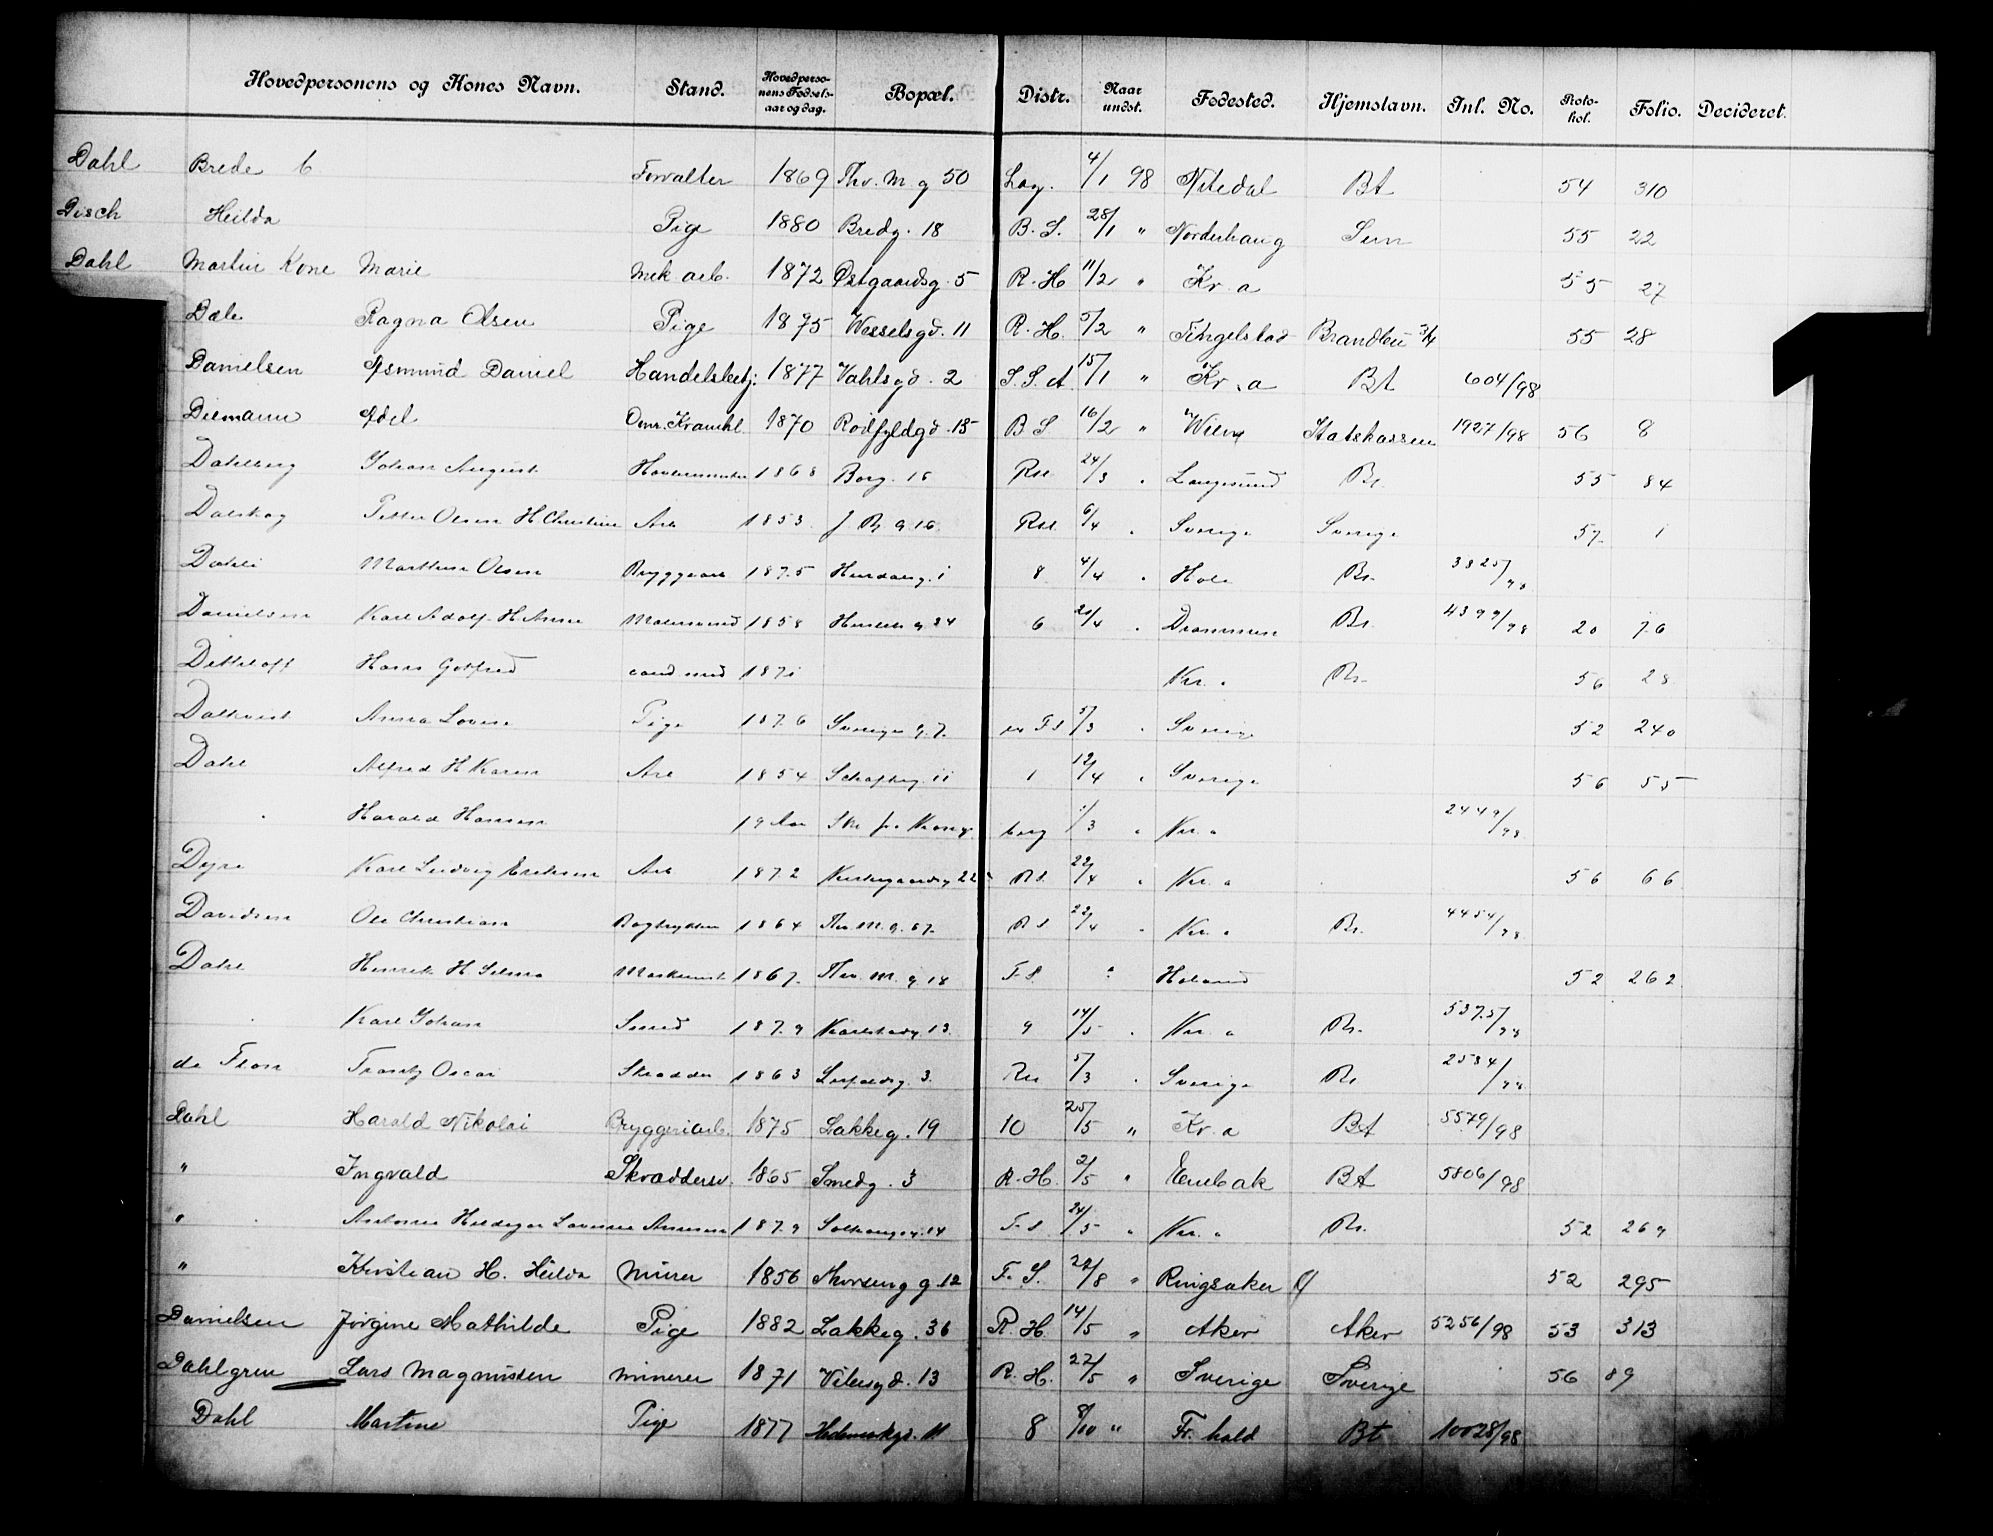 Hovedpersonens og Kones Navn. Stand. Hovedpersonens Fødselsaar og dag. Bopæl. Distr. Naar undst. Fødested. Hjemstavn. Inl. No. Protokol. Folio. Decideret.
Dahl Brede Forvalter 1869 Thv. M. g 50 4/1 98 Nitedal Bt 54 310
Disch Hilda Pige 1880 Bredg. 18 B. S. 28/1 " Norderhaug Sem 55 22
Dahl Martin Kone Marie Mek. arb. 1872 Østgaardsg. 5 R. H 11/2 " Kr. a 55 27
Dæle Ragna Olsen Pige 1875 Wesselsgd. 11 R. H. 5/2 " Tingelstad Brandbu 55 28
Danielsen Asmund Daniel Handelsbetj. 1877 Vahlsgd. 2 S. S. A 15/1 " Kr. a Bt 604/98
Diemann Adel Omr. Kramhl. 1870 Rødfyldgd. 15 B S 16/2 " Wien Statskassen 1927/98 56 8
Dahlberg Johan August 1868 Borg. 16 RH 24/3 " Langesund Bt. 55 84
Dalskog Petter Olsen H Christine Arb 1853 J B g 16 RH 6/4 " Sverige Sverige 57 1
Dahli Marthin Olsen Bryggearb 1875 Hurdalsg. 1 8 4/4 " Hole Bt. 3825/98
Danielsen Karl Adolf H Anna Malersvend 1858 6 21/4 " Drammen Bt. 4399/98 20 76
Dittloff Hans Gotfred cand. med 1871 Kr. a Bt. 56 28
Dalkvist Anna Lovise Pige 1876 Sverigesg. 7 F S 5/3 " Sverige 52 240
Dahl Alfred H Karen Arb 1854 Schoftsg. 11 1 12/4 " Sverige 56 55
" Harald Hansen 19 Aar Skr fra Kongsberg 1/3 " Kr. a 2449/98
Dyre Karl Ludvig Eriksen Arb 1872 Kirkegaardsg 22 RS. 22/4 " Kr. a 56 66
Davidsen Ole Christian Bogtrykker 1864 Thv. M. g. 67 R S 22/4 " Kr. a Bt. 4454/98
Dahl Henrik H Selma Maskinmst 1867 Thv. M. g. 18 F S. " Høland 52 262
" Karl Johan Smed 1879 Karlstadg 13 9 14/5 " Kr. a Bt. 5375/98
de Flon Frantz Oscar Skrædder 1863 Leopoldsg. 3 RH 5/3 " Sverige Bt 2584/98
Dahl Harald Nikolai Bryggeriarb. 1875 Lakkeg. 19 10 25/5 " Kr. a Bt 5579/98
" Ingvald Skræddersv. 1865 Smedg. 3 R. H. 2/5 " Enebak Bt 5806/98
" Antonie Hildegar Lovise Annesen 1879 Solhaugsg. 14 F S. 24/5 " Kr. a Bt. 52 269
" Kristian H. Hilda Murer 1856 g. 12 F. S. 22/8 " Ringsaker 52 295
Danielsen Jørgine Mathilde Pige 1882 Lakkeg. 36 R. H. 14/5 " Aker Aker 5256/98 53 313
Dahlgren Lars Magnusen Minerer 1871 Vibesgd. 13 R. H. 22/5 " Sverige Sverige 56 89
Dahl Martine Pige 1877 Hedemarksg. 11 8 8/10 " Fr. hald Bt 10028/98